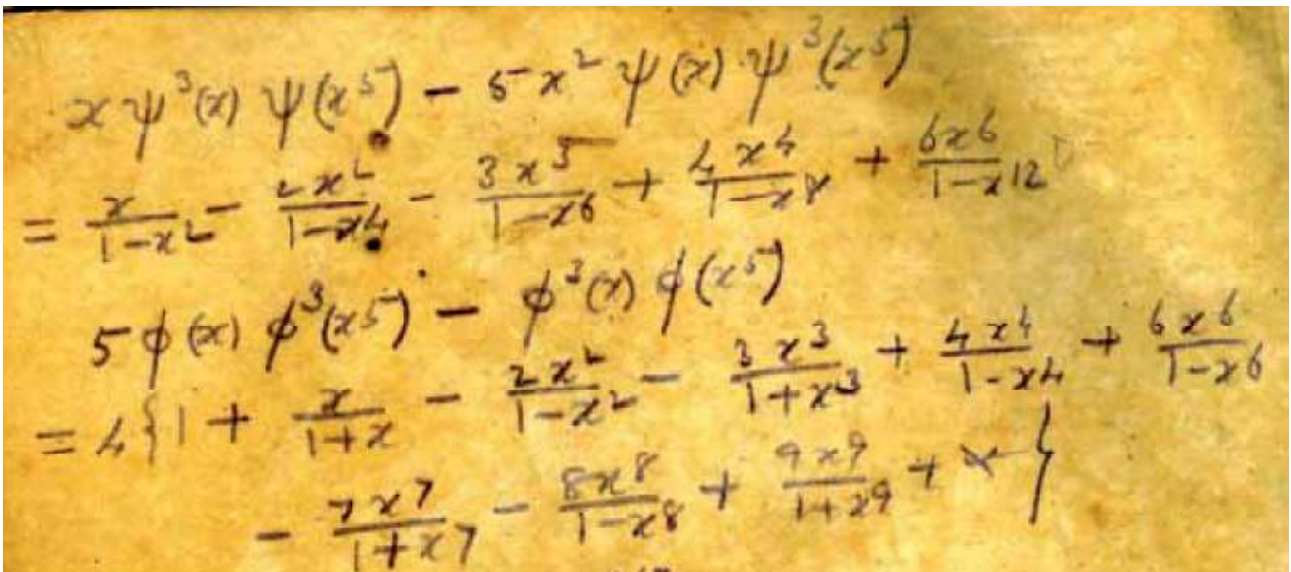 x ψ³(x) ψ(x⁵) − 5x² ψ(x) ψ³(x⁵)
= x/(1−x²) − 2x²/(1−x⁴) − 3x³/(1−x⁶) + 4x⁴/(1−x⁸) + 6x⁶/(1−x¹²)
5φ(x) φ³(x⁵) − φ³(x) φ(x⁵)
= 4{1 + x/(1+x) − 2x²/(1−x²) − 3x³/(1+x³) + 4x⁴/(1−x⁴) + 6x⁶/(1−x⁶)
− 7x⁷/(1+x⁷) − 8x⁸/(1−x⁸) + 9x⁹/(1+x⁹) + }